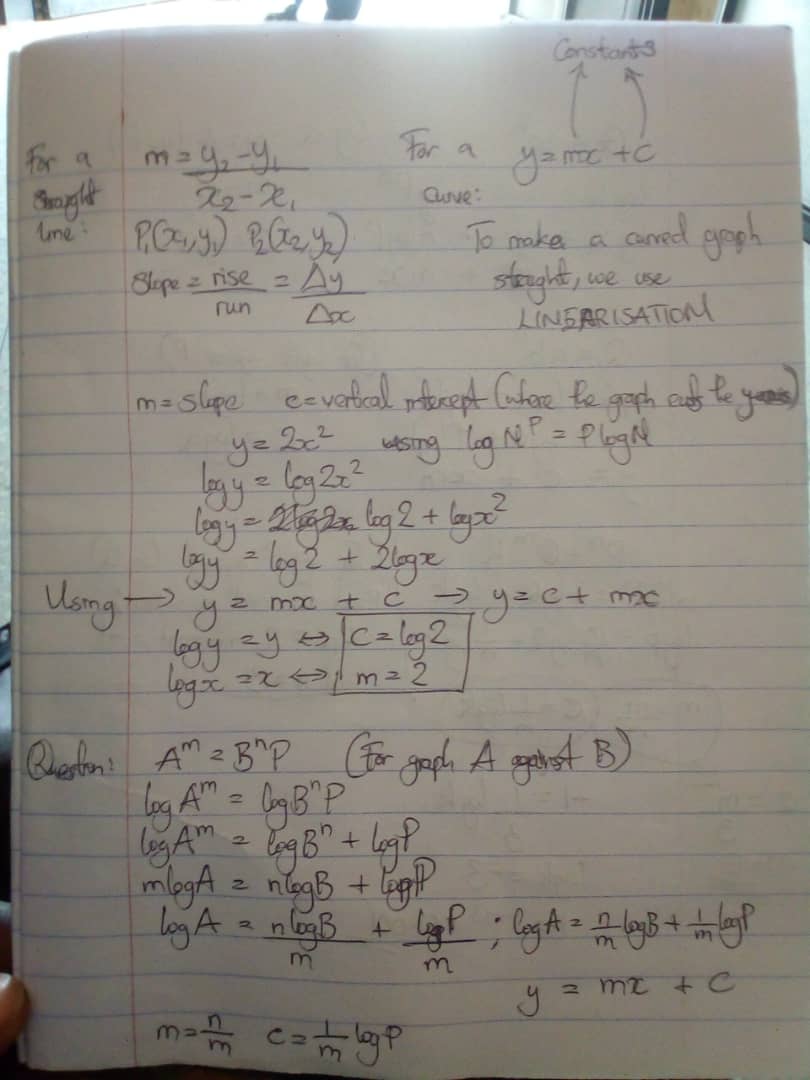 Constants
For a straight line:
m = y₂-y₁ / x₂-x₁
P₁(x₁,y₁) P₂(x₂,y₂)
Slope = rise / run = Δy / Δx
For a curve:
y=mx +c
To make a curved graph
straight, we use
LINEARISATION
m = slope c = vertical intercept (where the graph cuts the y-axis)
y = 2x² using log Nᴾ = P log N
log y = log 2x²
log y = log 2 + log x²
log y = log 2 + 2 log x
Using → y = mx + c → y = c + mx
log y = y ⇔ c = log 2
log x = x ⇔ m = 2
Question: Aᵐ = BⁿP (For graph A against B)
log Aᵐ = log BⁿP
log Aᵐ = log Bⁿ + log P
m log A = n log B + log P
log A = n log B / m + log P / m ; log A = n/m log B + 1/m log P
y = mx + c
m = n/m c = 1/m log P